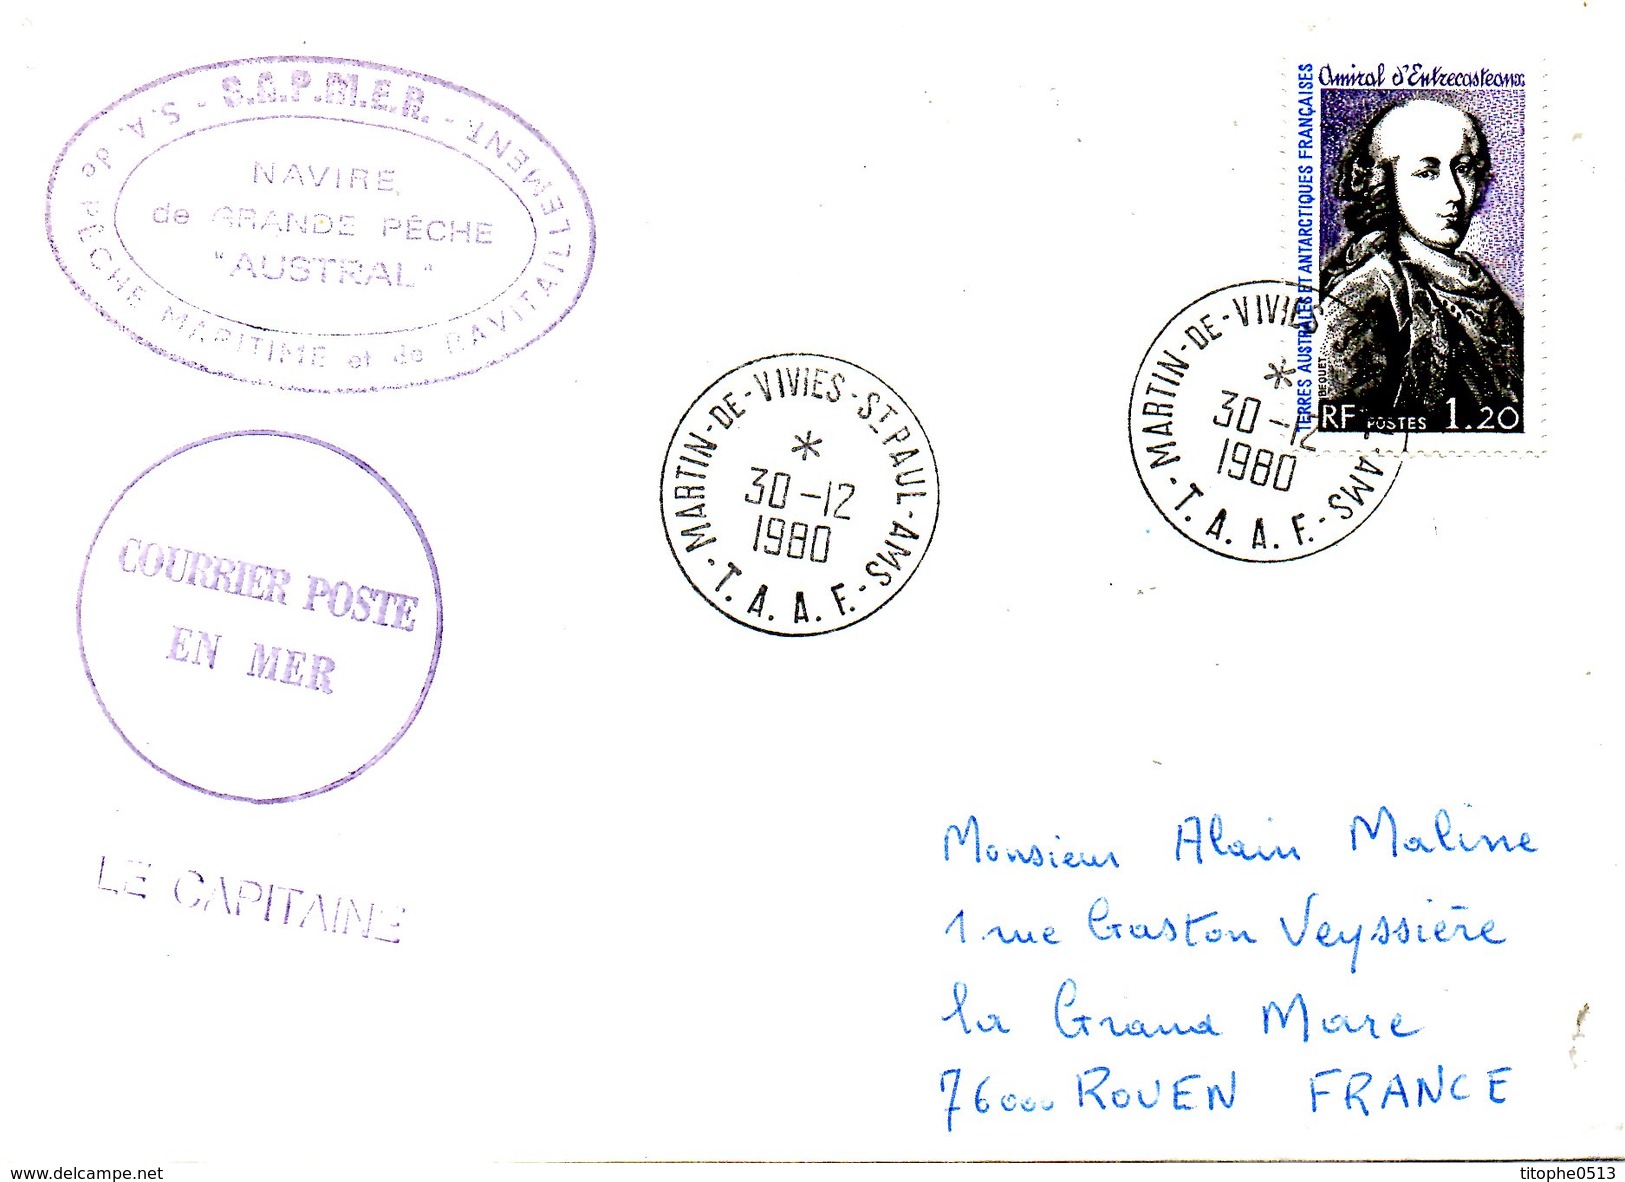 S.A.P.M.E.R.
- S.A. de PÊCHE MARITIME et de RAVITAILLEMENT -
NAVIRE
de GRANDE PÊCHE
"AUSTRAL"
COURRIER POSTE
EN MER
LE CAPITAINE
MARTIN-DE-VIVIES-ST PAUL-AMS
*
30-12
1980
- T. A. A. F. -
MARTIN-DE-VIVIES
*
30-12
1980
- T. A. A. F. - AMS
Amiral d'Entrecasteaux
TERRES AUSTRALES ET ANTARCTIQUES FRANÇAISES
BEQUET
RF POSTES 1.20
Monsieur Alain Maline
1 rue Gaston Veyssière
la Grand Mare
76000 ROUEN FRANCE
www.delcampe.net
titophe0513